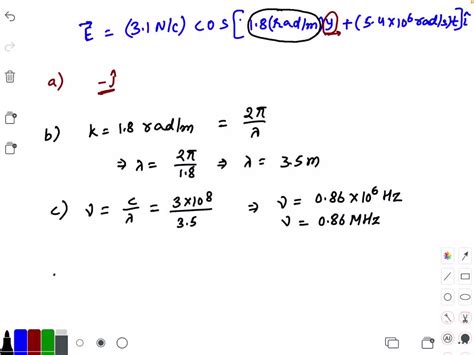 E⃗ = (3.1 N/c) cos [1.8(rad/m)y + (5.4×10⁶ rad/s)t] î
a) -ĵ
b) k = 1.8 rad/m = 2π/λ
⇒ λ = 2π/1.8 ⇒ λ = 3.5 m
c) ν = c/λ = 3×10⁸/3.5 ⇒ ν = 0.86×10⁶ Hz
ν = 0.86 MHz